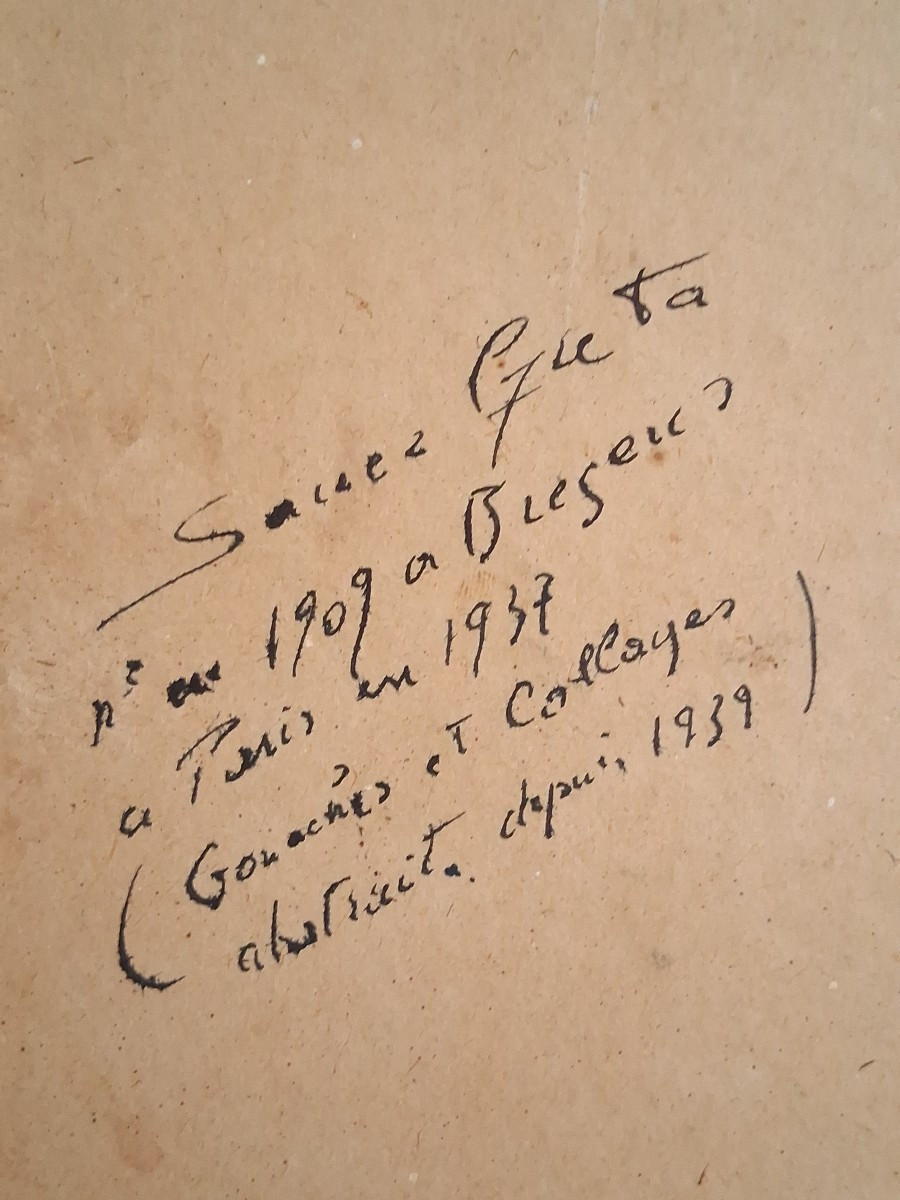 Sauer Greta
né en 1909 a Bregens
a Paris en 1937
(Gouaches et Collages
abstraits depuis 1939)